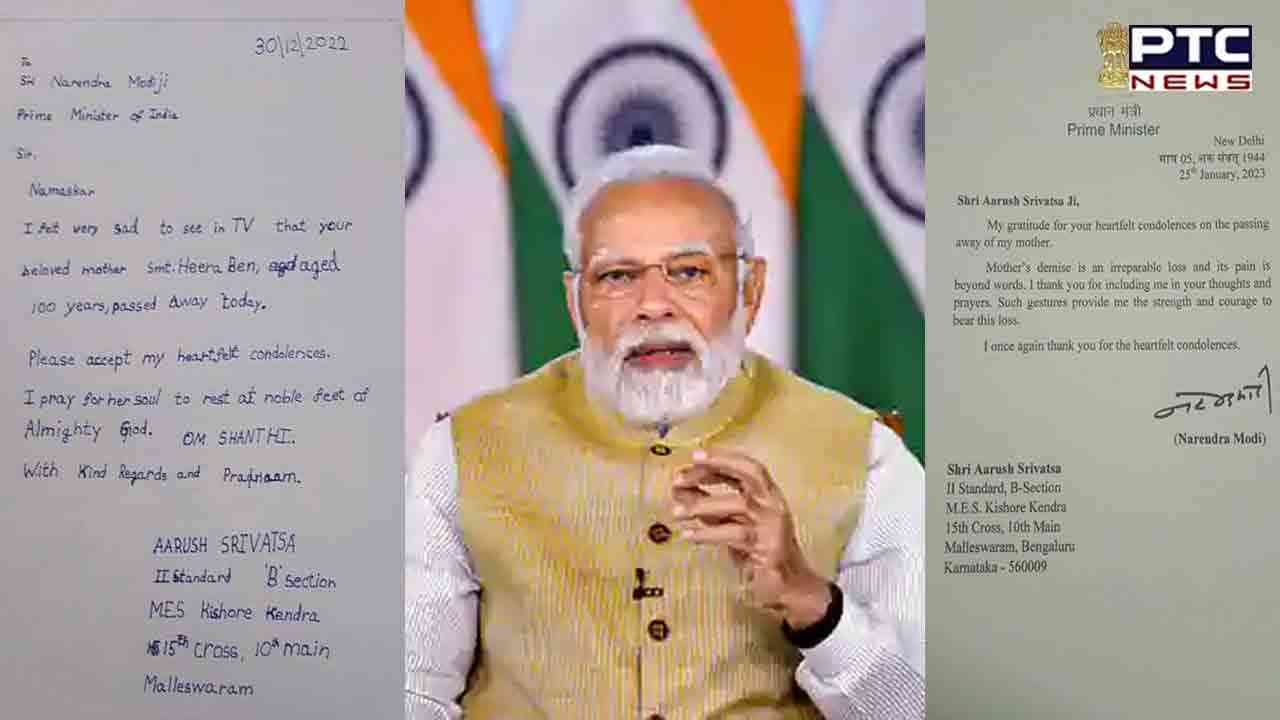 30/12/2022
To
Sri Narendra Modiji
Prime Minister of India
Sir.
Namaskar
I felt very sad to see in TV that your
beloved mother Smt. Heera Ben, aged
100 years, passed Away today.
Please accept my heartfelt condolences.
I pray for her soul to rest at noble feet of
Almighty God. OM SHANTHI.
With Kind Regards and
AARUSH SRIVATSA
II Standard 'B' section
MES Kishore Kendra
15th Cross, 10th main
Malleswaram
PTC
NEWS
प्रधान मंत्री
Prime Minister
New Delhi
माघ 05, शक संवत् 1944
25th January, 2023
Shri Aarush Srivatsa Ji,
My gratitude for your heartfelt condolences on the passing
away of my mother.
Mother's demise is an irreparable loss and its pain is
beyond words. I thank you for including me in your thoughts and
prayers. Such gestures provide me the strength and courage to
bear this loss.
I once again thank you for the heartfelt condolences.
(Narendra Modi)
Shri Aarush Srivatsa
II Standard, B-Section
M.E.S. Kishore Kendra
15th Cross, 10th Main
Malleswaram, Bengaluru
Karnataka - 560009